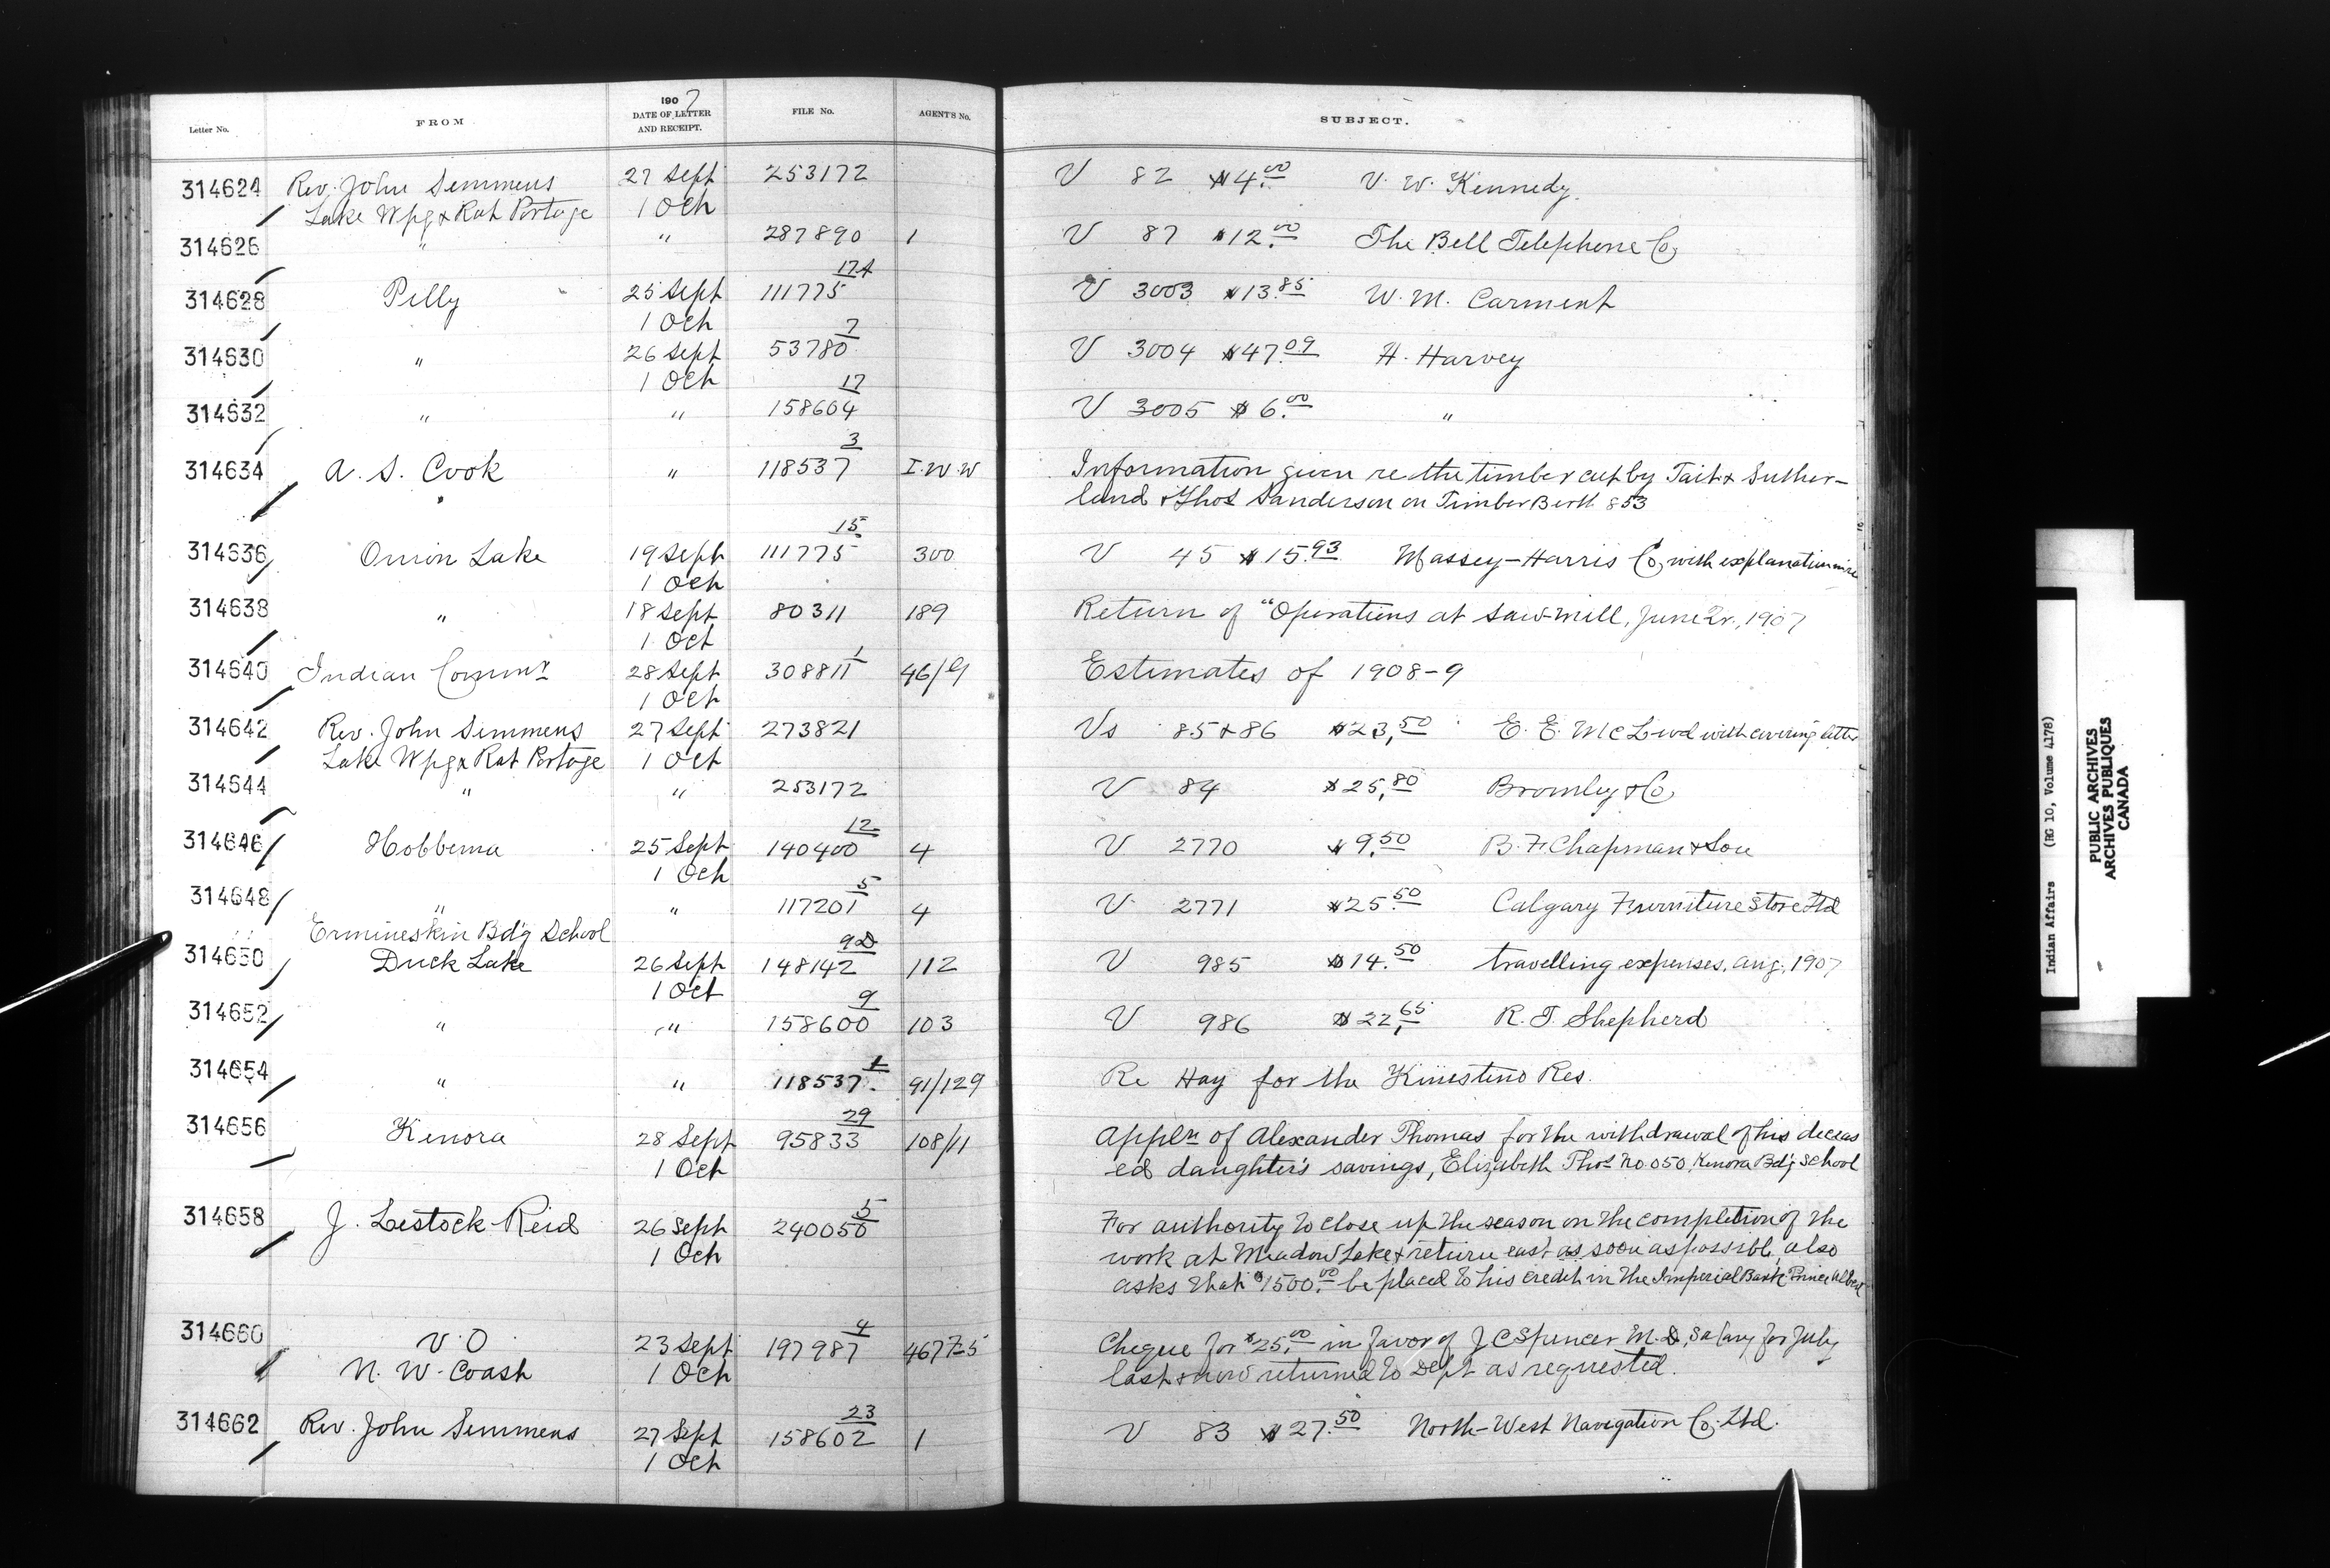 Letter No. FROM 1907 DATE OF LETTER AND RECEIPT. FILE No. AGENT'S No. SUBJECT.
314624 Rev. John Semmens 27 Sept 253172 V 82 $4.00 V. W. Kennedy.
Lake Wpg & Rat Portage 1 Oct
314626 " " 287890 1 V 87 $12.00 The Bell Telephone Co,
17A
314628 Pelly 25 Sept 111775 V 3003 $13.85 W. M. Carment
1 Oct 7
314630 " 26 Sept 53780 V 3004 $47.09 H. Harvey
1 Oct 17
314632 " " 158604 V 3005 $6.00 "
3
314634 A. S. Cook " 118537 I.W.W Information given re the timber cut by Tait & Suther-
land & Thos Sanderson on Timber Berth 853
15
314636 Onion Lake 19 Sept 111775 300 V 45 $15.93 Massey-Harris Co, with explanation
1 Oct
314638 " 18 Sept 80311 189 Return of "Operations at Saw-mill, June Qr., 1907
1 Oct 1
314640 Indian Commr 28 Sept 308811 46/G Estimates of 1908-9
1 Oct
314642 Rev. John Semmens 27 Sept 273821 Vs 85 & 86 $23,50 E. E. McLeod with covering letter
Lake Wpg & Rat Portage 1 Oct
314644 " " 253172 V 84 $25,80 Bromley & Co,
12
314646 Hobbema 25 Sept 140400 4 V 2770 $9.50 B. F. Chapman & Son
1 Oct 5
314648 " " 117201 4 V 2771 $25.50 Calgary Furniture Store Ltd
Ermineskin Bd'g School 9D
314650 Duck Lake 26 Sept 148142 112 V 985 $14.50 travelling expenses, Aug, 1907
1 Oct 9
314652 " " 158600 103 V 986 $22,65 R. T. Shepherd
1
314654 " " 118537. 91/129 Re Hay for the Kinistino Res.
29
314656 Kenora 28 Sept 95833 108/11 Appln of Alexander Thomas for the withdrawal of his deceas
1 Oct ed daughter's savings, Elizabeth Thos No.050, Kenora Bd'g School
5
314658 J. Lestock Reid 26 Sept 240050 For authority to close up the season on the completion of the
1 Oct work at Meadow Lake & return east as soon as possible, also
asks that $1500.00 be placed to his credit in the Imperial Bank Prince Albert
4
314660 V.O 23 Sept 197987 467-5 Cheque for $25,00 in favor of J C Spencer M.D, Salary for July
N. W. Coast 1 Oct last & now returned to Dept as requested.
23
314662 Rev. John Semmens 27 Sept 158602 1 V 83 $27.50 North-West Navigation Co. Ltd.
1 Oct
Indian Affairs (RG 10, Volume 4178)
PUBLIC ARCHIVES
ARCHIVES PUBLIQUES
CANADA